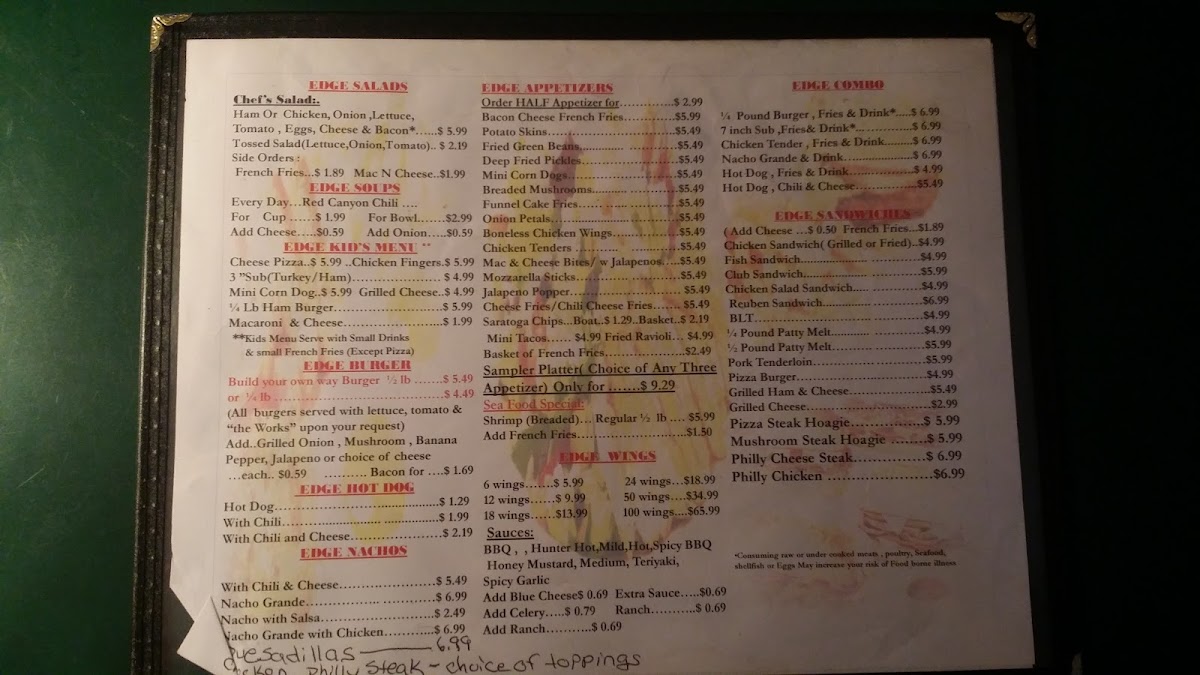 EDGE SALADS
Chef's Salad:.
Ham Or Chicken, Onion ,Lettuce,
Tomato , Eggs, Cheese & Bacon*......$ 5.99
Tossed Salad(Lettuce,Onion,Tomato).. $ 2.19
Side Orders :
French Fries...$ 1.89 Mac N Cheese..$1.99
EDGE SOUPS
Every Day...Red Canyon Chili ....
For Cup ......$ 1.99 For Bowl.......$2.99
Add Cheese.....$0.59 Add Onion.....$0.59
EDGE KID'S MENU **
Cheese Pizza..$ 5.99 ..Chicken Fingers.$ 5.99
3 "Sub(Turkey/Ham)........................$ 4.99
Mini Corn Dog..$ 5.99 Grilled Cheese..$ 4.99
¼ Lb Ham Burger............................$ 5.99
Macaroni & Cheese.........................$ 1.99
**Kids Menu Serve with Small Drinks
& small French Fries (Except Pizza)
EDGE BURGER
Build your own way Burger ½ lb .......$ 5.49
or ¼ lb ........................................$ 4.49
(All burgers served with lettuce, tomato &
"the Works" upon your request)
Add..Grilled Onion , Mushroom , Banana
Pepper, Jalapeno or choice of cheese
...each.. $0.59 .......... Bacon for ....$ 1.69
EDGE HOT DOG
Hot Dog........................................$ 1.29
With Chili......................................$ 1.99
With Chili and Cheese......................$ 2.19
EDGE NACHOS
With Chili & Cheese........................$ 5.49
Nacho Grande................................$ 6.99
Nacho with Salsa.............................$ 2.49
Nacho Grande with Chicken............$ 6.99
Quesadillas 6.99
Chicken Philly Steak - choice of toppings
EDGE APPETIZERS
Order HALF Appetizer for...............$ 2.99
Bacon Cheese French Fries..............$5.99
Potato Skins..................................$5.49
Fried Green Beans..........................$5.49
Deep Fried Pickles..........................$5.49
Mini Corn Dogs..............................$5.49
Breaded Mushrooms.......................$5.49
Funnel Cake Fries...........................$5.49
Onion Petals..................................$5.49
Boneless Chicken Wings..................$5.49
Chicken Tenders ............................$5.49
Mac & Cheese Bites/ w Jalapenos. ....$5.49
Mozzarella Sticks............................$5.49
Jalapeno Popper............................ $ 5.49
Cheese Fries/Chili Cheese Fries....... $ 5.49
Saratoga Chips...Boat..$ 1.29..Basket..$ 2.19
Mini Tacos...... $4.99 Fried Ravioli... $4.99
Basket of French Fries.....................$2.49
Sampler Platter( Choice of Any Three
Appetizer) Only for .......$ 9.29
Sea Food Special:
Shrimp (Breaded)... Regular ½ lb .... $ 5.99
Add French Fries............................$1.50
EDGE WINGS
6 wings.......$ 5.99 24 wings...$18.99
12 wings......$ 9.99 50 wings....$34.99
18 wings......$13.99 100 wings....$65.99
Sauces:
BBQ , , Hunter Hot,Mild,Hot,Spicy BBQ
Honey Mustard, Medium, Teriyaki,
Spicy Garlic
Add Blue Cheese$ 0.69 Extra Sauce.....$0.69
Add Celery.....$ 0.79 Ranch...........$ 0.69
Add Ranch...........$ 0.69
EDGE COMBO
¼ Pound Burger , Fries & Drink*.....$ 6.99
7 inch Sub ,Fries& Drink*... ............$ 6.99
Chicken Tender , Fries & Drink.........$ 6.99
Nacho Grande & Drink....................$ 6.99
Hot Dog , Fries & Drink..................$ 4.99
Hot Dog , Chili & Cheese.................$5.49
EDGE SANDWICHES
( Add Cheese ...$ 0.50 French Fries...$1.89
Chicken Sandwich( Grilled or Fried)..$4.99
Fish Sandwich................................$4.99
Club Sandwich...............................$5.99
Chicken Salad Sandwich..................$4.99
Reuben Sandwich...........................$6.99
BLT..............................................$4.99
¼ Pound Patty Melt........................$4.99
½ Pound Patty Melt........................$5.99
Pork Tenderloin.............................$5.99
Pizza Burger..................................$4.99
Grilled Ham & Cheese....................$5.49
Grilled Cheese...............................$2.99
Pizza Steak Hoagie...............$ 5.99
Mushroom Steak Hoagie ........$ 5.99
Philly Cheese Steak...............$ 6.99
Philly Chicken .....................$6.99
*Consuming raw or under cooked meats , poultry, Seafood,
shellfish or Eggs May increase your risk of Food borne illness